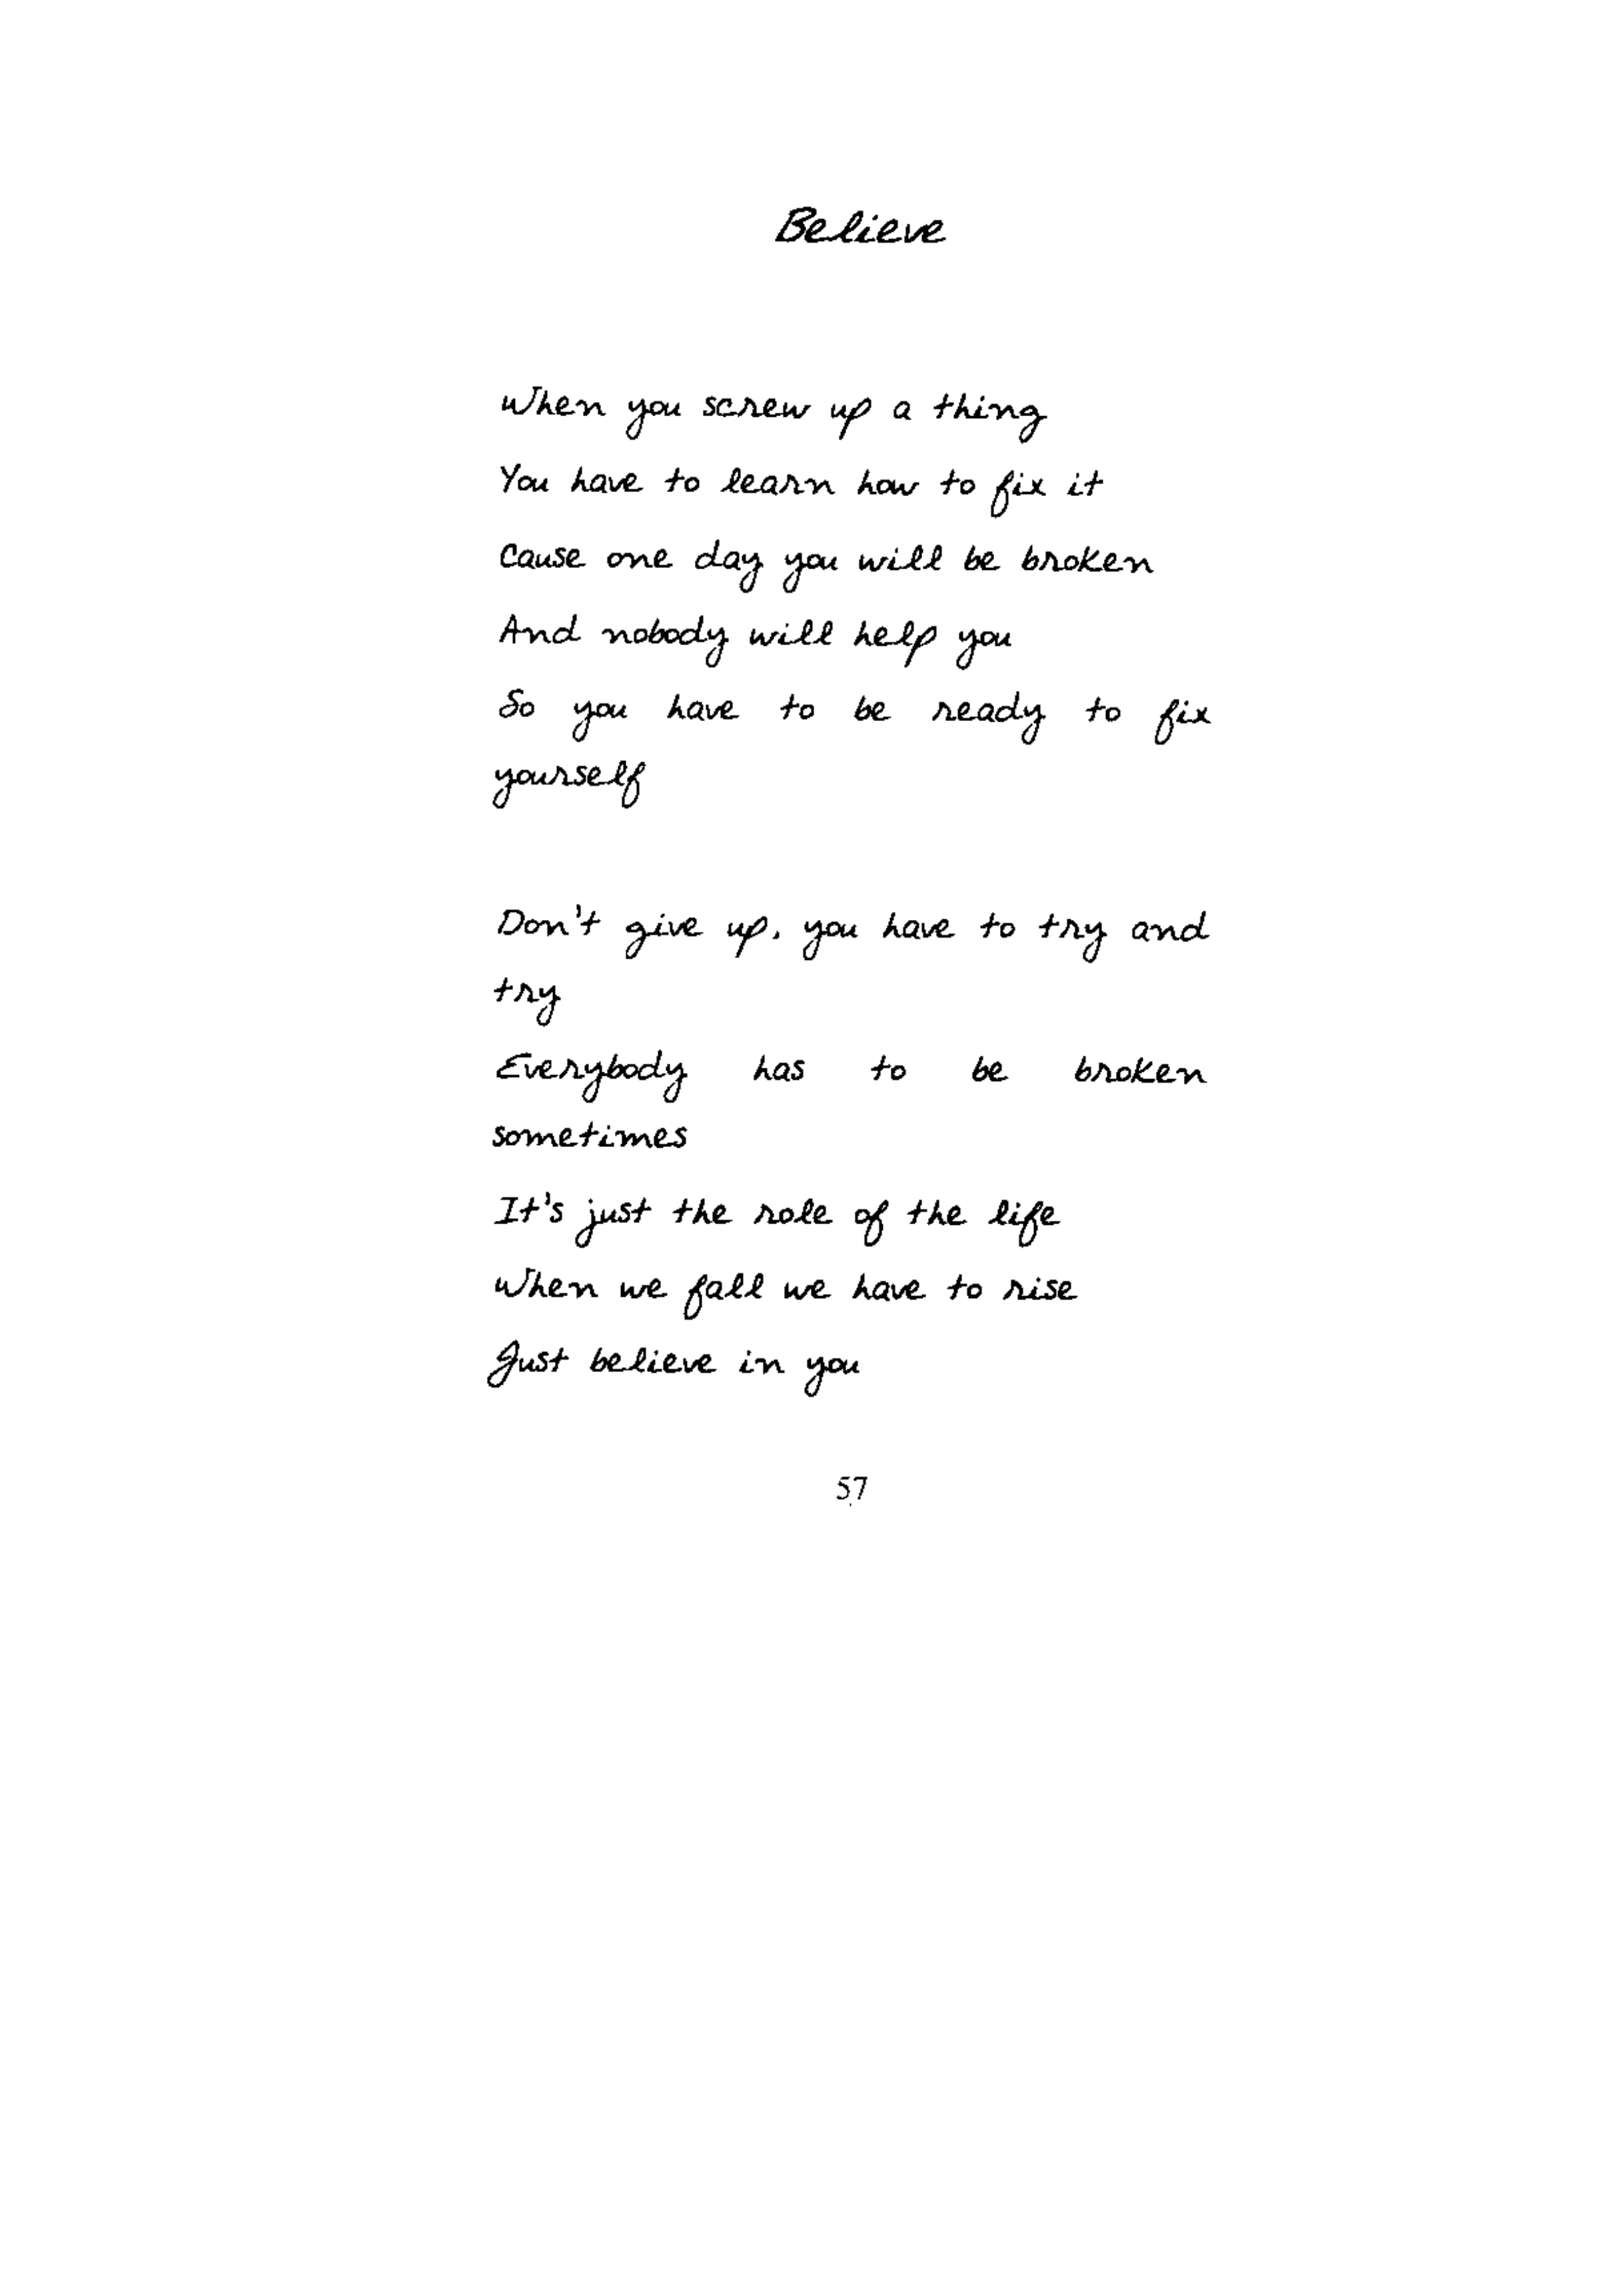 Believe
When you screw up a thing
You have to learn how to fix it
Cause one day you will be broken
And nobody will help you
So you have to be ready to fix
yourself
Don't give up, you have to try and
try
Everybody has to be broken
sometimes
It's just the role of the life
When we fall we have to rise
Just believe in you
57